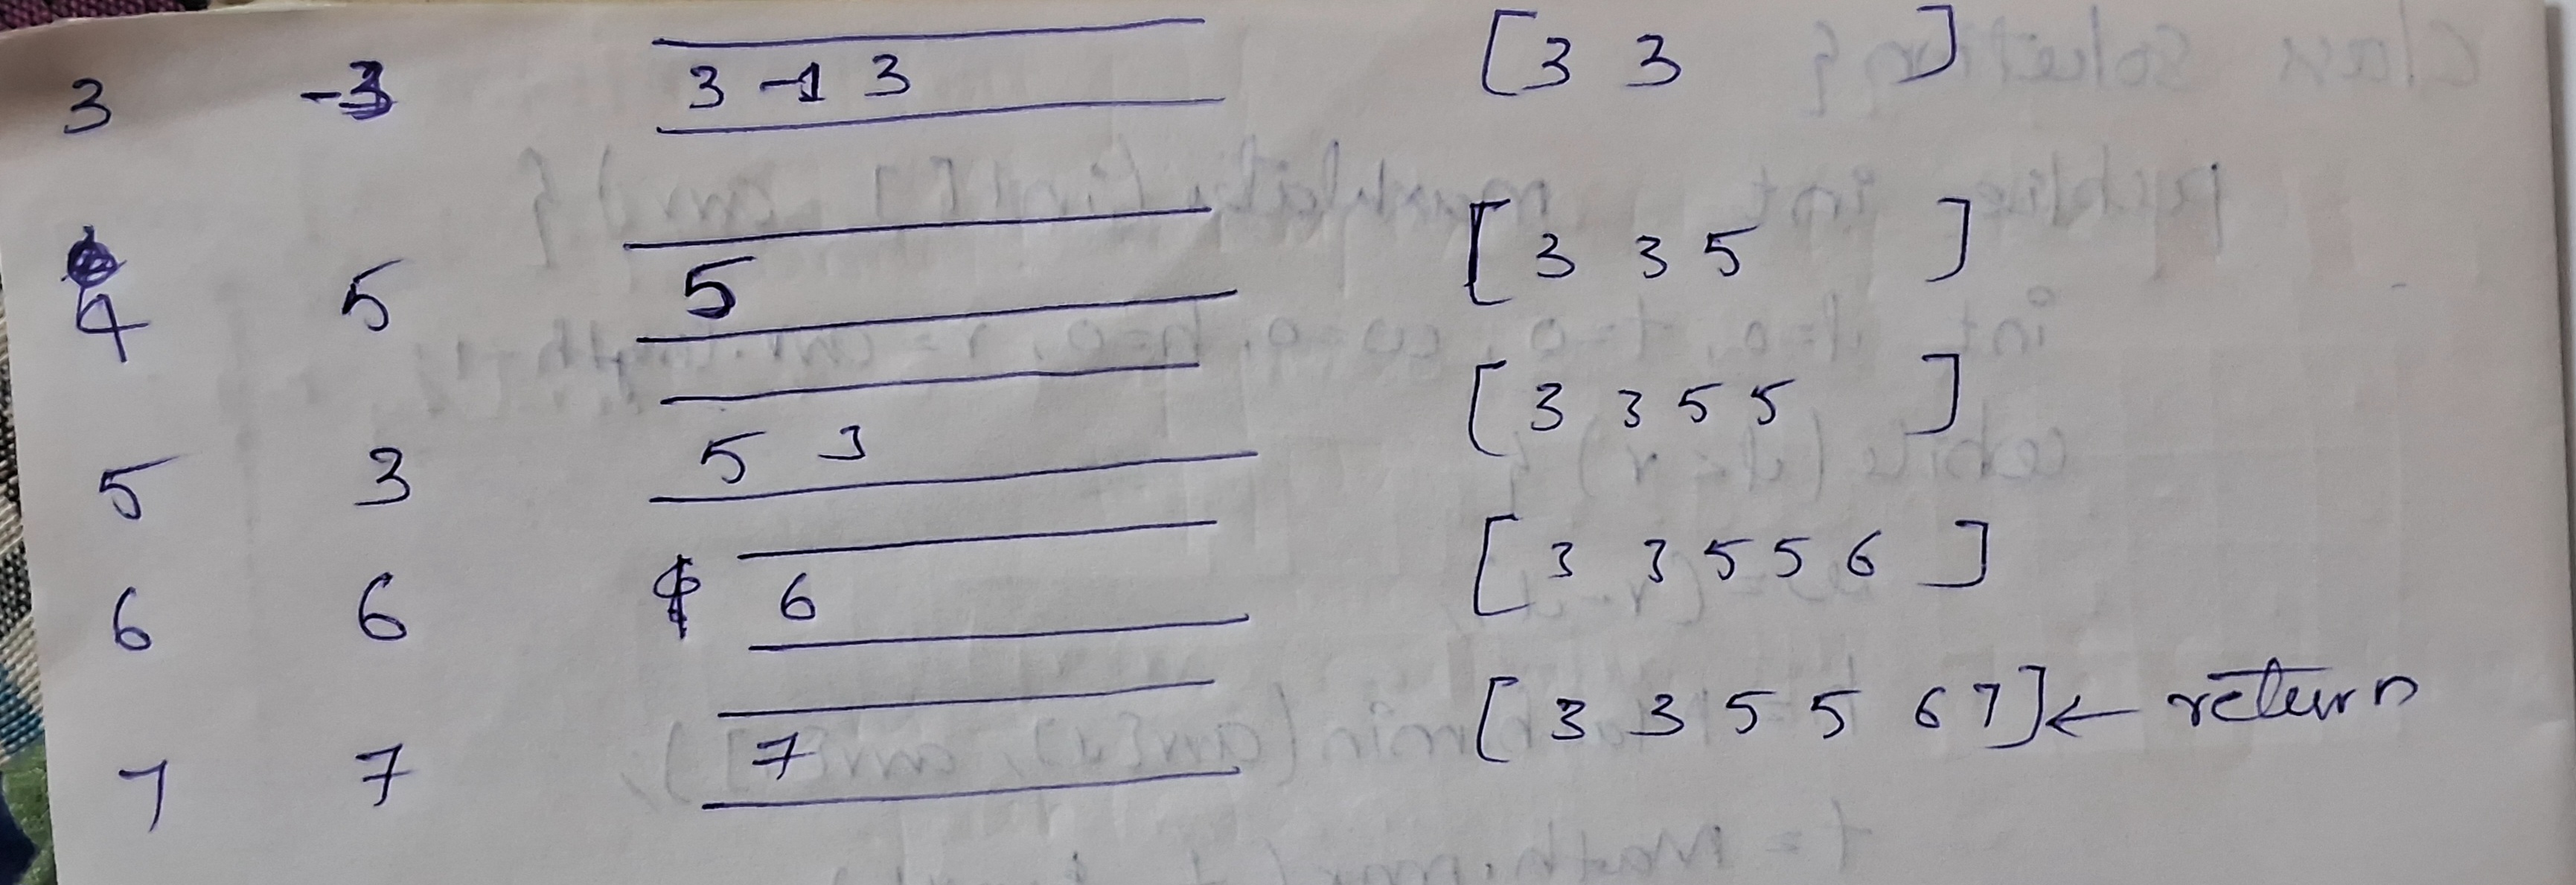 3 -3 3 -1 3 [3 3 ]
4 5 5 [3 3 5 ]
5 3 5 3 [3 3 5 5 ]
6 6 6 [3 3 5 5 6 ]
7 7 7 [3 3 5 5 6 7] ← return